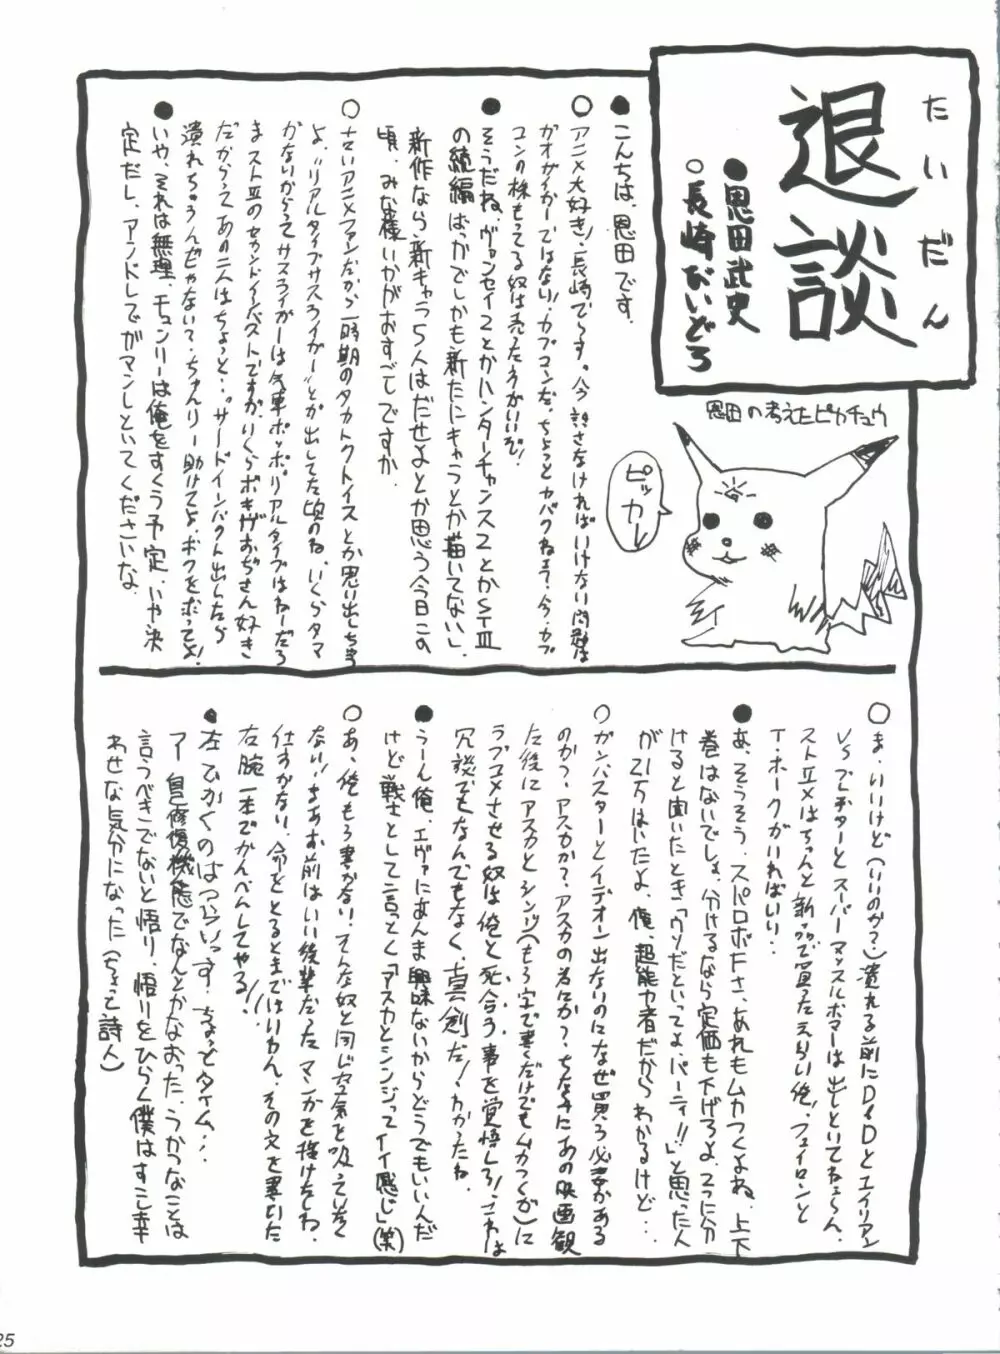 たいだん
退談
●恩田武史
○長崎ないどろ
恩田の考えたピカチュウ
ピッカレ
●こんちは、恩田です。
○アニメ大好き!長崎で〜す。今、話さなければいけない問題は
ガオガイガーではない!カプコンだ。ちょっとヤバクねェ?今、カプ
コンの株もってる奴は売ったうがいいぞ!
●そうだね、ヴァンセイ2とかハンターチャンス2とかストIII
の続編ばっかでしかも新たにキャラとか描いてない。
新作なら新キャラ5人はだせよとか思う今日この
頃、みな様いかがおすごしですか。
○せいアニメファンだから一時期のタカトクトイスとか思い出しちまう
よ。"リアルタイプサスライガー"とか出してた頃のね、いくらタマ
がないからってサスライガーは汽車ポッポ、リアルタイプはねーだろ
ま、ストIIIのセカンドインパクストですが、いくらボキがおぢさん好き
だからってあの二人はちょっと…。"サードインパクト"出したら
潰れちゃうんぢゃないて?ちゅんリー助けてよ、ボクをホってよ!
●いや、それは無理。チュンリーは俺をすくう予定、いや決
定だし、アンドレでガマンしといてくださいな。
○ま、いいけど(いいのか?)、潰れる前にD&Dとエイリアン
VSプレデターとスーパーマッスルボマーは出しといてねェ〜ん、
ストIIXはちゃんと新品で買ったえらい俺!フェイロンと
T・ホークがいればいい!
●あ、そうそう、スパロボFさ、あれもムカつくよね、上下
巻はないでしょ。分けるなら定価も下げろよ。2つに分
けると聞いたとき「ウソだといってよ、バーディ!!」と思った人
が21万はいたよ、俺、超能力者だからわかるけど…
○ガンバスターとイデオン出ないのになぜ買う必要がある
のか?、アスカか?、アスカの為にか?、ちなみにあの映画観
た後にアスカとシンジ(もう字で書くだけでもムカつくが)に
ラブコメさせる奴は俺と死合う事を覚悟しろ!これは
冗談でもなんでもなく、真剣だ!わかったね
●うーん俺、エヴァにあんま興味ないからどうでもいいんだ
けど戦士として言っとく「アスカとシンジってイイ感じ」(笑)
○あ、俺もう妻がない、そんな奴と同じ空気を吸っていたく
ない!、まぁお前はいい後輩だった。マンガを描けなくね
仕すがない、命をとるとまではいわん、その文を書いた
右腕一本でかんべんしてやる!!
●左でかくのはつらいっす。ちょっとタイム…、
アー自己修復機能でなんとかなおった、うかつなことは
言うべきでないと悟り、悟りをひらく僕はすこし幸
わせな気分になった(ちょと詩人)
25